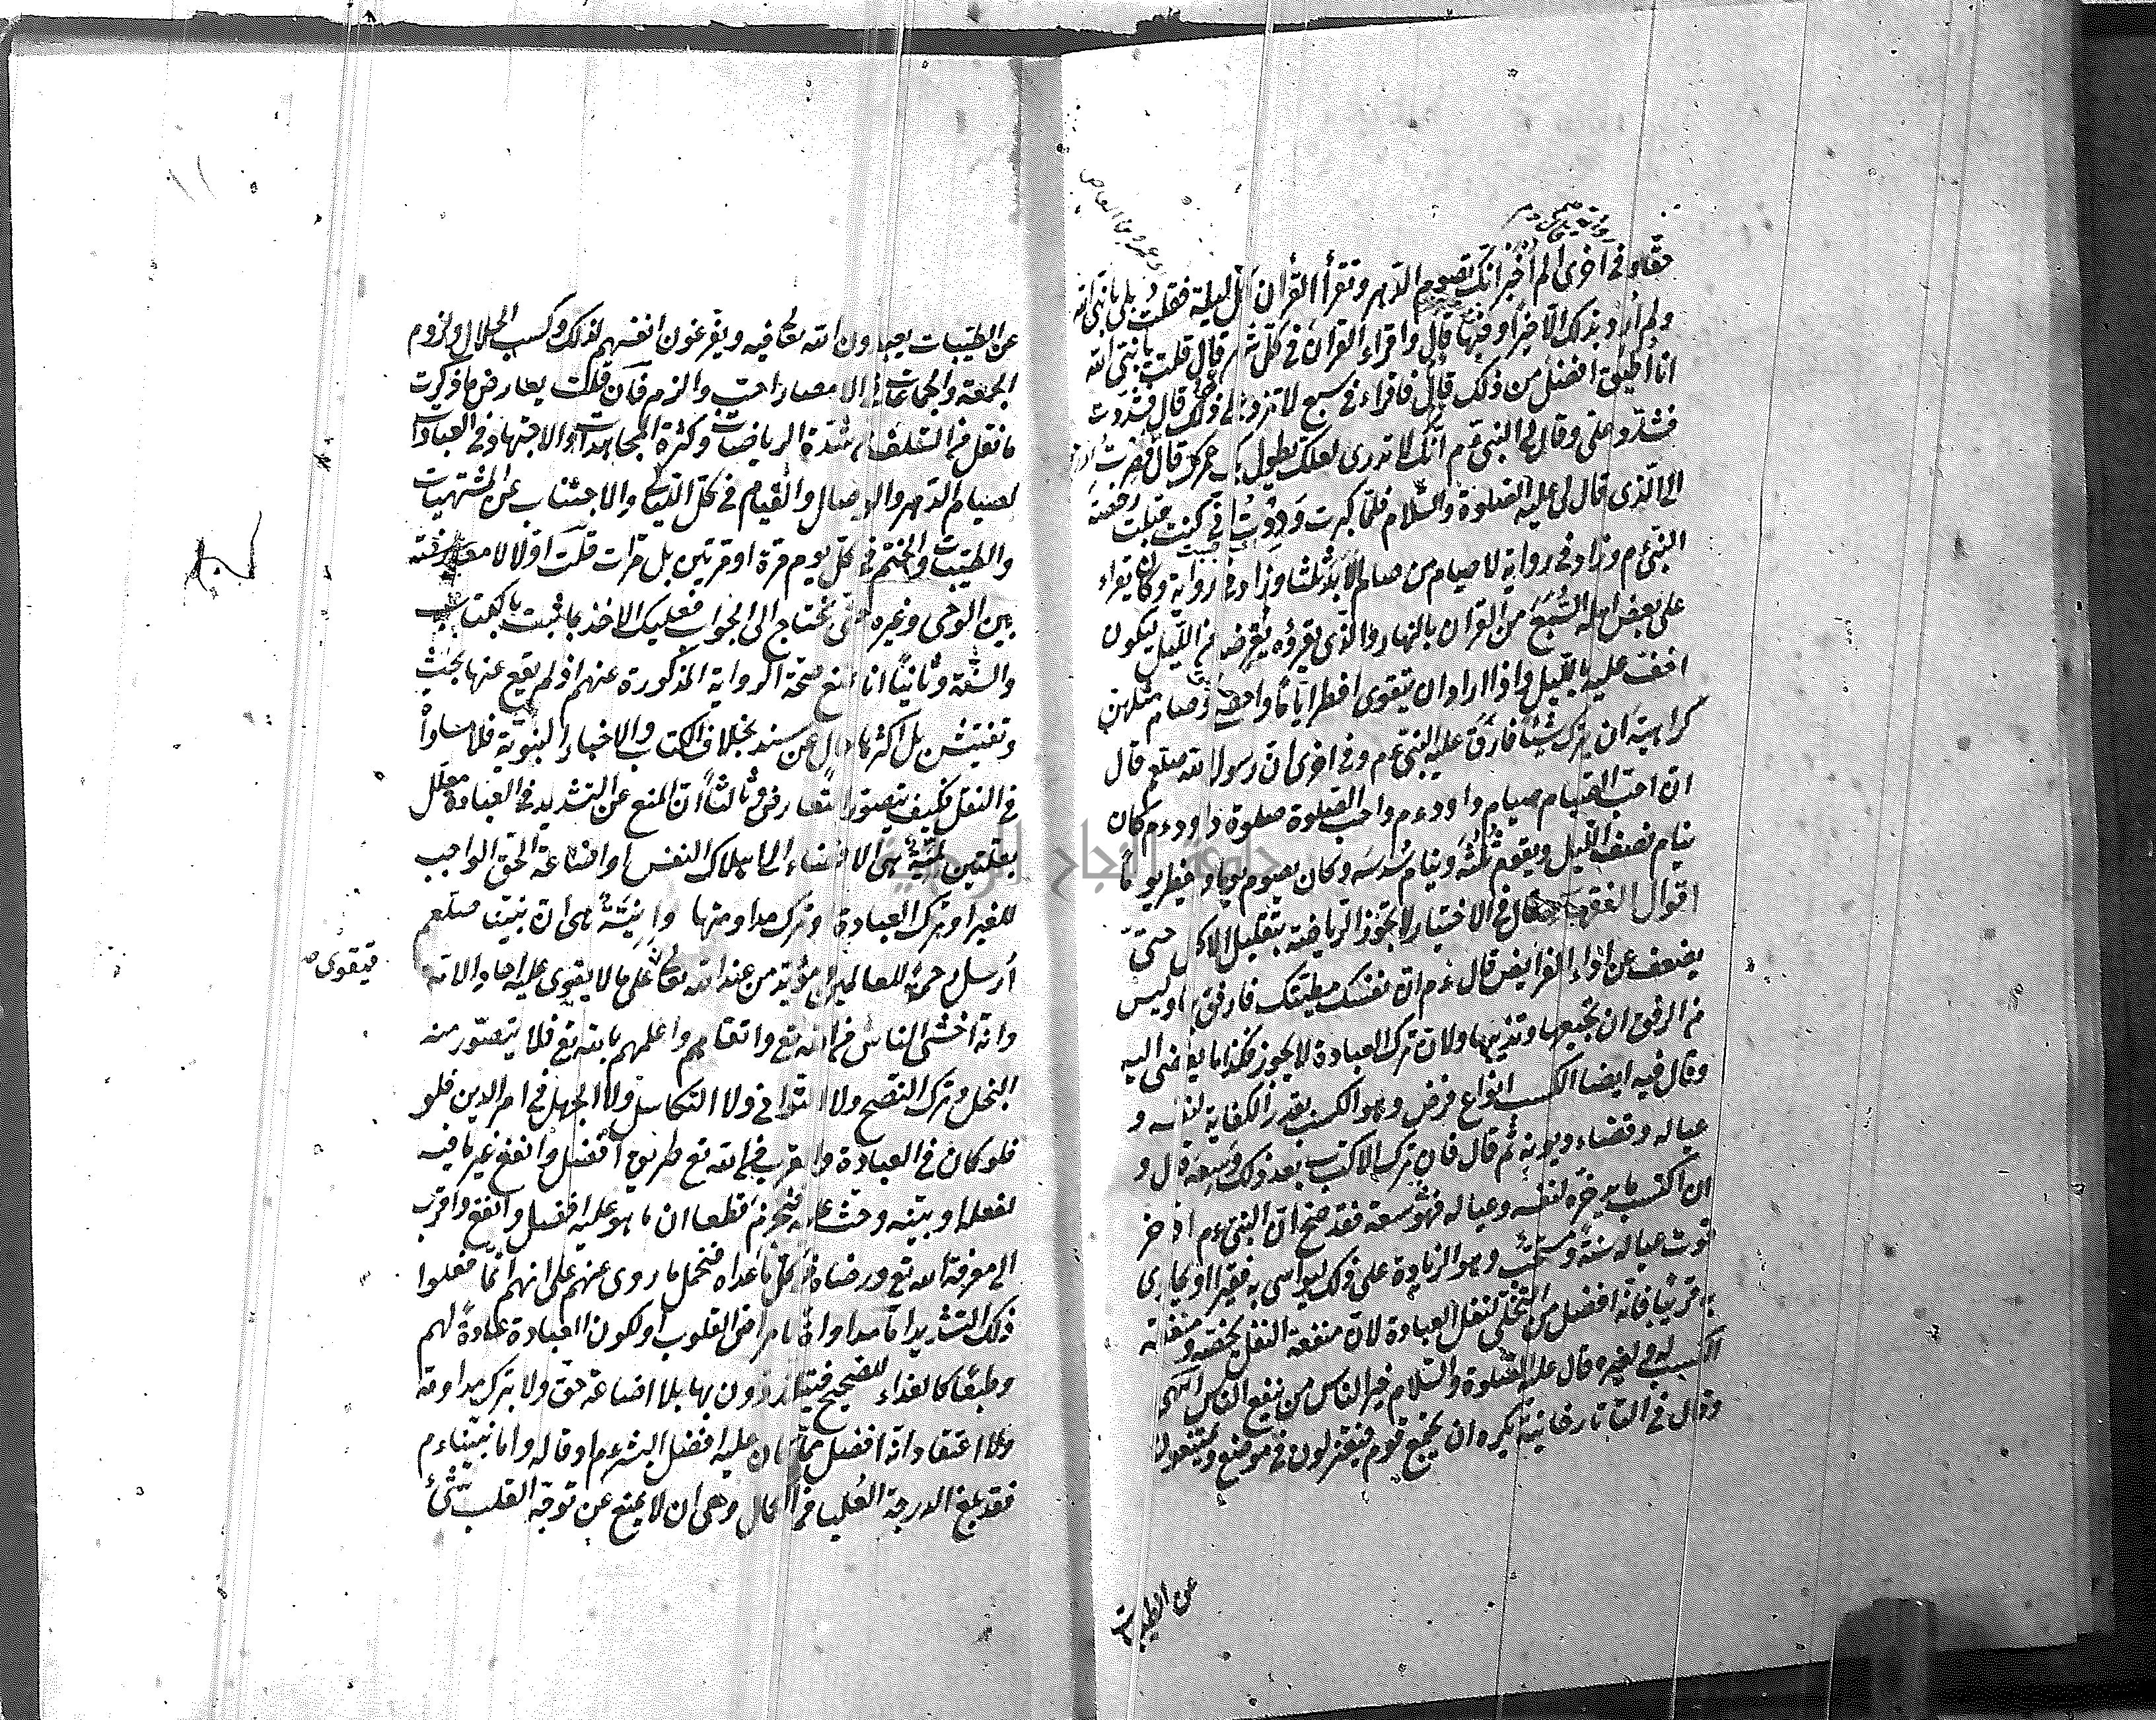 حقا وفي اخرى الم اخبر انك تصوم الدهر وتقرأ القرأن كل ليلة فقلت بلى يا نبي الله
ولم أرد بذلك الا خيرا وفيها قال واقراء القرأن في كل شهر قال قلت يا نبي الله
انا أطيق افضل من ذلك قال فاقراء في سبع لا تزد على ذلك قال فشددت
فشدد علي وقال لي النبي عم انك لا تدرى لعلك يطول بك عمرك قال فصرت
الى الذى قال لى عليه الصلوة والسلام فلما كبرت وددت اني كنت قبلت رخصة
النبي عم وزاد في رواية لا صيام من صام الابد ثلثا وزاد في رواية وكان يقراء
على بعض اهله السبع من القرأن بالنهار والذى يقرؤه يعرضه من الليل ليكون
اخف عليه بالليل واذا اراد ان يتقوى افطر اياما واحصى وصام مثلهن
كراهية ان يترك شيئا فارق عليه النبي عم وفي اخرى ان رسول الله صلعم قال
ان احب الصيام صيام داود عم واحب الصلوة صلوة داود عم كان
ينام نصف الليل ويقوم ثلثه وينام سدسه وكان يصوم يوما ويفطر يوما
اقوال الفقهاء قال في الاختيار لا تجوز الرياضة بتقليل الاكل حتى
يضعف عن اداء الفرايض قال عم ان نفسك مطيتك فارفق بها وليس
من الرفق ان تجيعها وتذيبها ولان ترك العبادة لا يجوز فكذا ما يفضى اليه
وقال فيه ايضا الكسب انواع فرض وهو الكسب بقدر الكفاية لنفسه و
عياله وقضاء ديونه ثم قال فان ترك الاكتساب بعد ذلك وسعه قال و
ان اكتسب ما يدخره لنفسه وعياله فهو سعة فقد صح ان النبي عم ادخر
قوت عياله سنة ومستحب وهو الزيادة على ذلك ليواسى به فقيرا او يجازى
به قريبا فانه افضل من التخلى لنفل العبادة لان منفعة النفل تخصه ومنفعة
الكسب له ولغيره وقال عليه الصلوة والسلام خير الناس من ينفع الناس انتهى
وقال في التاتارخانية يكره ان يجتمع قوم فيعتزلون في موضع ويمتنعون
عن الطيبات
عن الطيبات يعبدون الله تعالى فيه ويفرغون انفسهم لذلك وكسب الحلال ولزوم
الجمعة والجماعات في الامصار احب والزم فان قلت يعارض ما ذكرت
ما نقل من السلف من شدة الرياضات وكثرة المجاهدات والاجتهاد في العبادات
لصيام الدهر والوصال والقيام في كل الليالى والاجتناب عن المشتهيات
والطيبات والختم في كل يوم مرة او مرتين بل مرات قلت اولا لا معارضة
بين الوحى وغيره حتى يحتاج الى الجواب فعليك الاخذ بما ثبت بالكتاب
والسنة وثانيا انا نمنع صحة الرواية المذكورة عنهم اذ لم يقع عنها بحث
وتفتيش بل اكثرها خال عن سند بخلاف الكتاب والاخبار النبوية فلا مساواة
في النقل فكيف يتصور التعارض وثالثا ان المنع عن التشديد في العبادة معلل
بعلتين لمية هى الافضاء الى اهلاك النفس او اضاعة الحق الواجب
للغير او ترك العبادة او ترك مداومتها وانية هى ان نبينا صلعم
أرسل رحمة للعالمين مؤيد من عند الله تعالى على ما لا يقوى عليه احاد الامة
فيتقوى
وانه اخشى الناس من الله تع واتقاهم واعلمهم بالله تع فلا يتصور منه
البخل وترك النصح ولا التوانى ولا التكاسل ولا الجهل في امر الدين فلو
فلو كان في العبادة والقرب من الله تع طريق افضل وانفع غير ما فيه
لفعله او بينه وحث عليه فنجزم قطعا ان ما هو عليه افضل وانفع واقرب
الى معرفة الله تع ورضاه من كل ما عداه فنحمل ما روى عنهم على انهم انما فعلوا
ذلك التشديد اما مداواة لامراض القلوب او لكون العبادة عادة لهم
وطبعا كالغذاء للصحيح فيتلذذون بها بلا اضاعة حق ولا ترك مداومة
ولا اعتقاد انه افضل مما كان عليه افضل البشر عم او قاله واما نبينا عم
فقد بلغ الدرجة العليا من الكمال وهى ان لا يمنع عن توجه القلب شئ